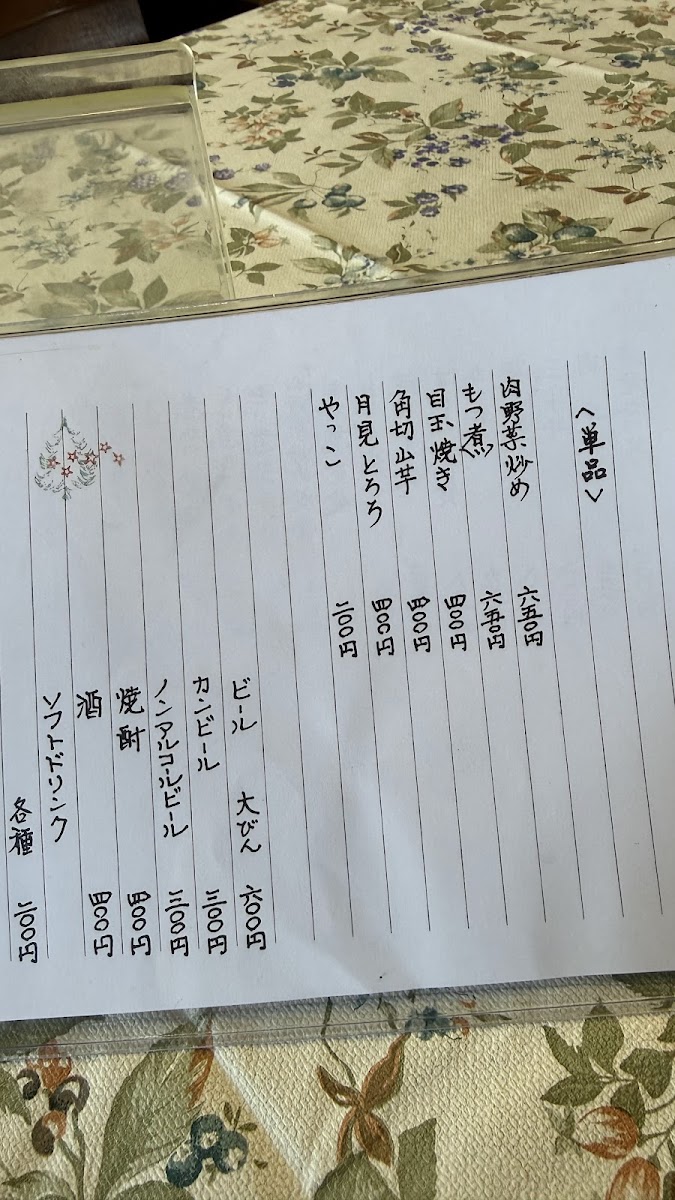 ＜単品＞
肉野菜炒め 六五〇円
もつ煮 六五〇円
目玉焼き 四〇〇円
角切山芋 四〇〇円
月見とろろ 四〇〇円
やっこ 二〇〇円
ビール 大びん 六〇〇円
カンビール 三〇〇円
ノンアルコールビール 三〇〇円
焼酎 四〇〇円
酒 四〇〇円
ソフトドリンク
各種 二〇〇円